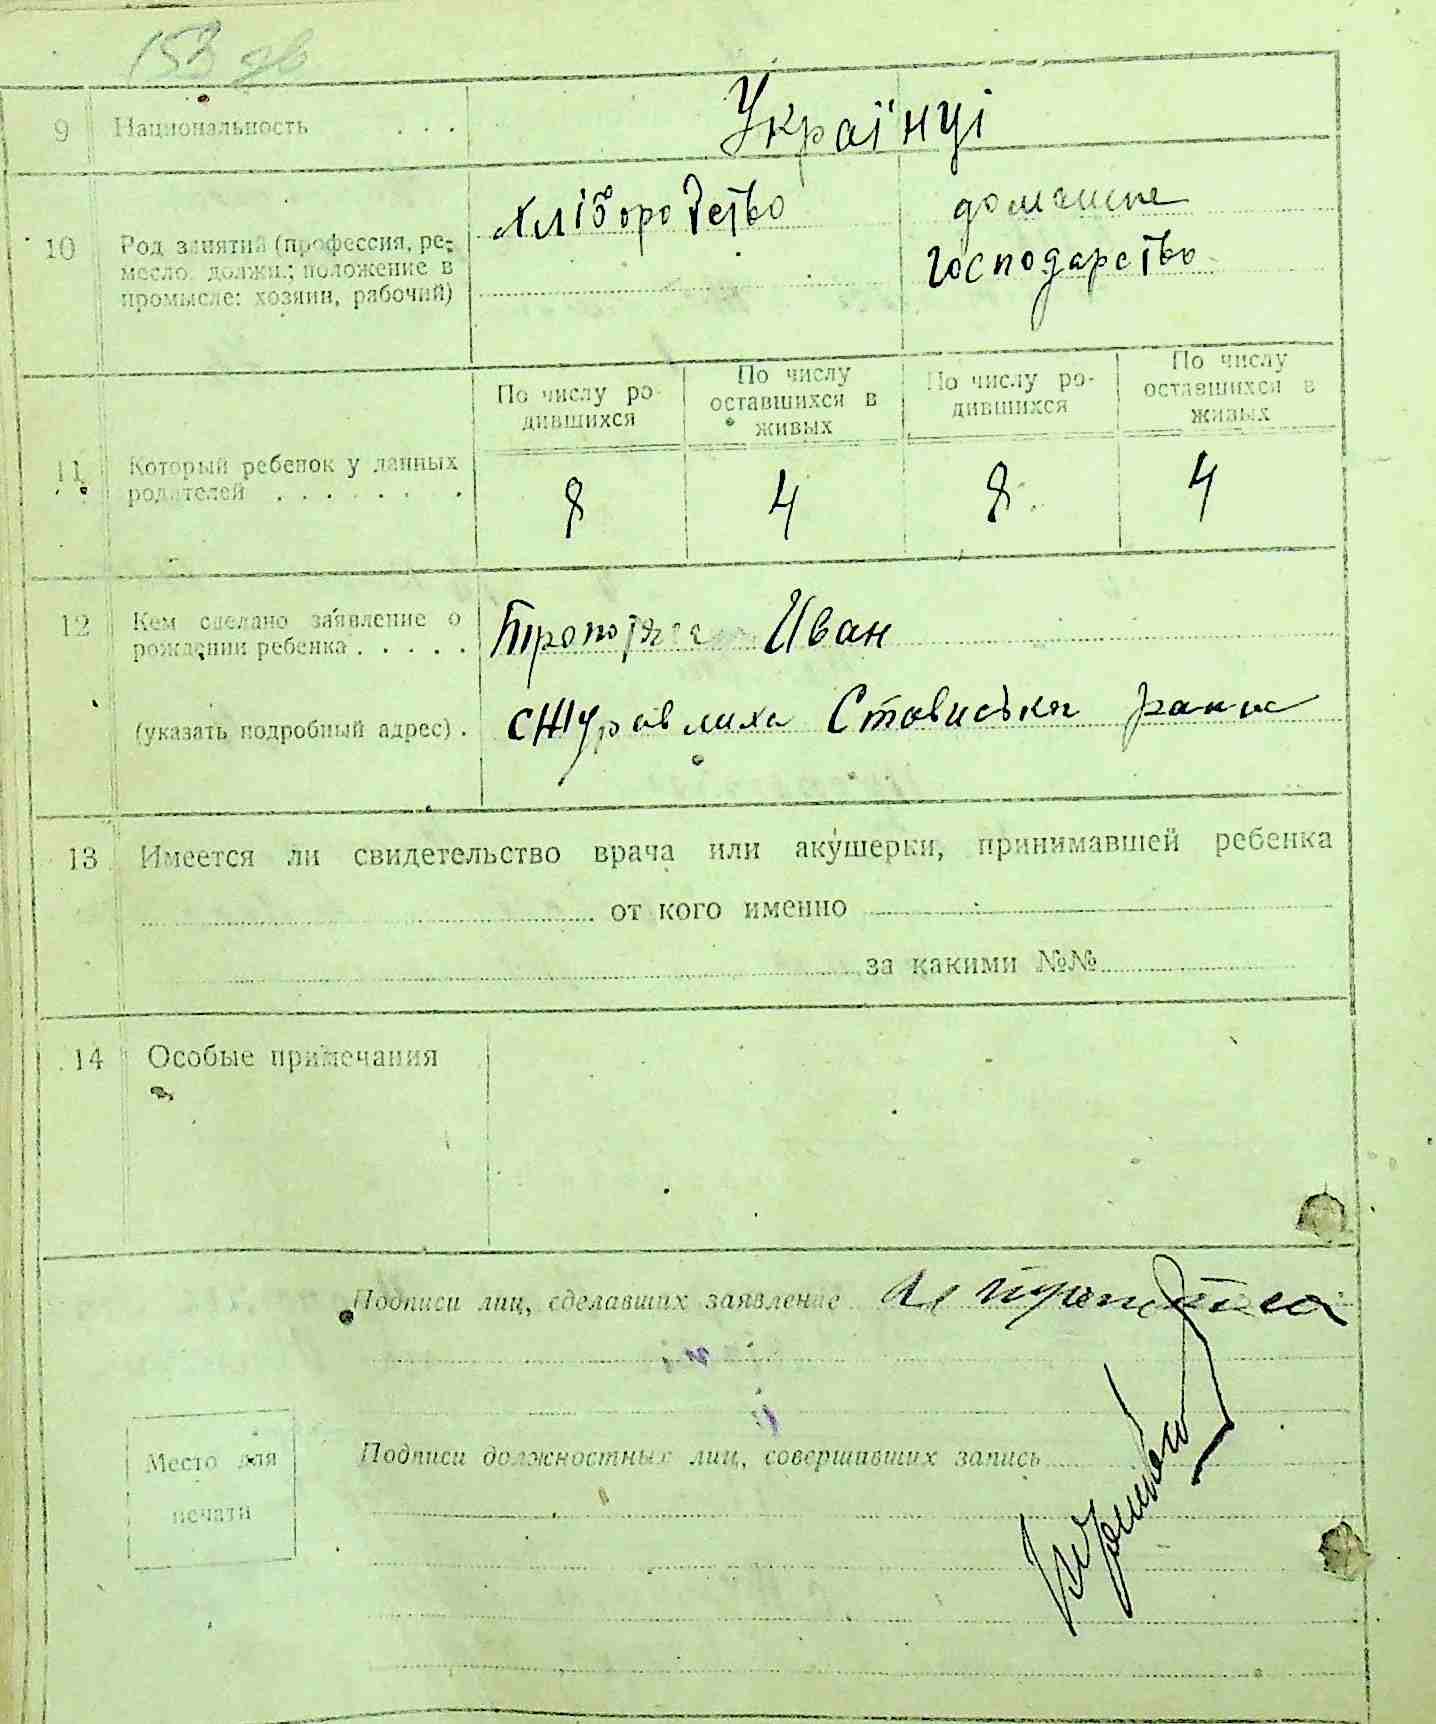 153 зв
9 Национальность . . . Українці
10 Род занятий (профессия, ре-
месло, должн.; положение в
промысле: хозяин, рабочий)
хліборобство
домашне
господарство
По числу ро-
дившихся
По числу
оставшихся в
живых
По числу ро-
дившихся
По числу
оставшихся в
живых
11 Который ребенок у данных
родителей . . . . . . .
8 4 8 4
12 Кем сделано заявление о
рождении ребенка . . . . .
Иван
(указать подробный адрес) .
с Журавлиха Стависька
13 Имеется ли свидетельство врача или акушерки, принимавшей ребенка
от кого именно
за какими №№
14 Особые примечания
Подписи лиц, сделавших заявление
Подписи должностных лиц, совершивших запись
Место для
печати